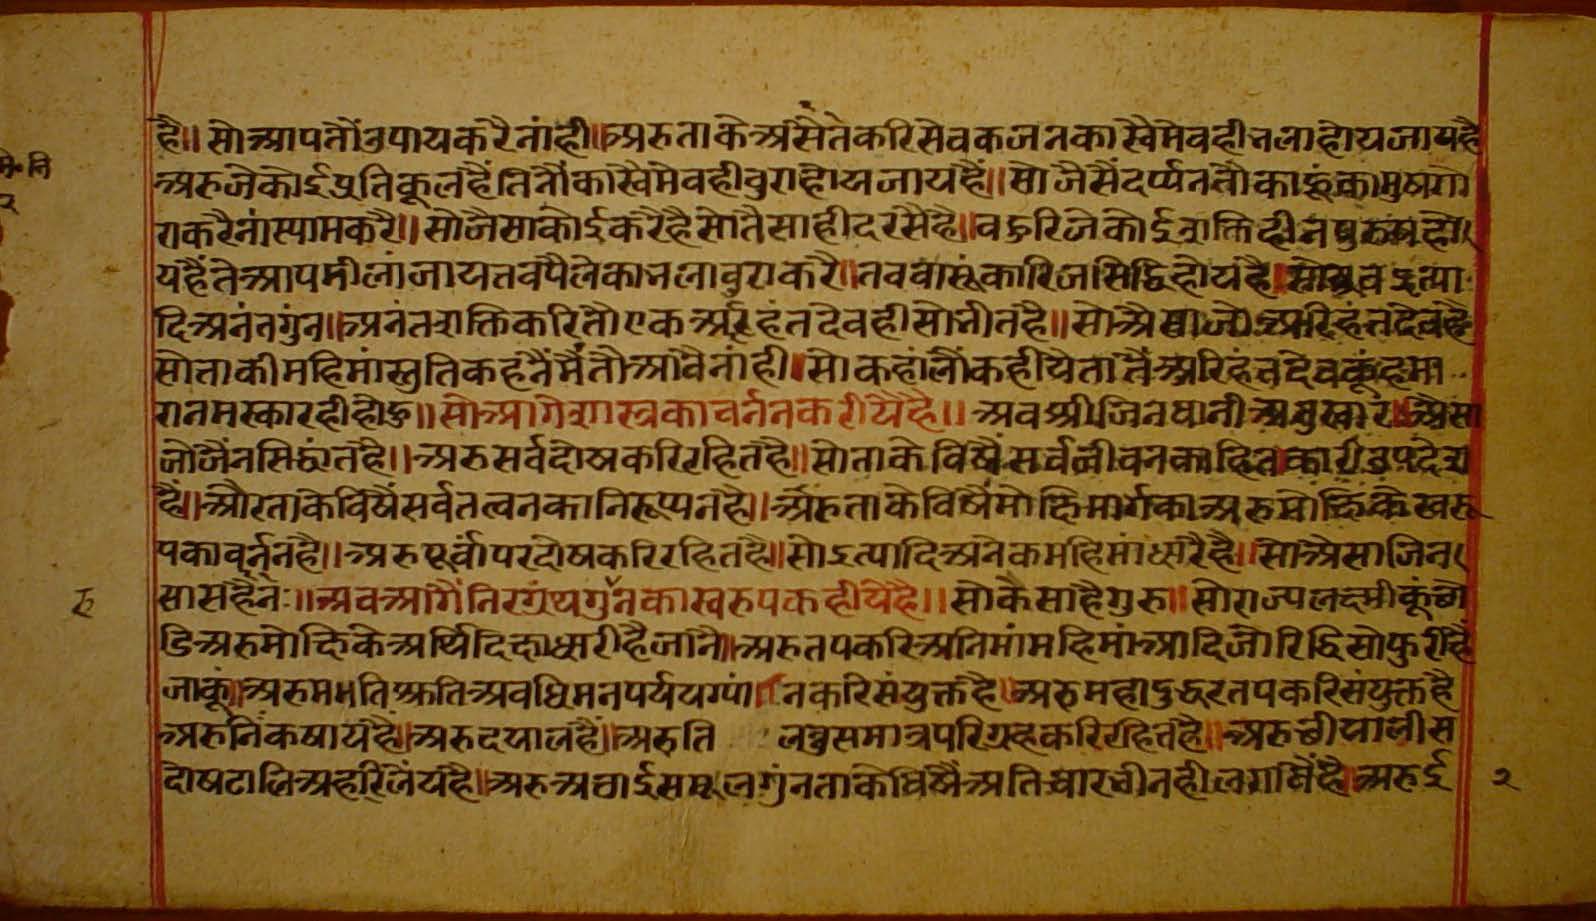 है॥ सो आपतौ उपाय करै नांही॥ अरु ताके असैते करि सेवक जन का स्वैमेव ही भला होय जाय है
अरु जे कोई प्रतिकूल हैं तिनौं का स्वैमेव ही बुरा होय जाय हैं॥ सो जैसैं दर्प्पन तौ काहूं का मुष गो
रा करै नां स्याम करै॥ सो जैसा कोई करै है सो तैसा ही दरसै है॥ बहुरि जे कोई शक्ति हीन पुरुष हो
य हैं ते आप मीलां जाय तब पैले का भला बुरा करै॥ तब वासूं कारिज सिद्धि होय है॥ सो इत्या
दि अनंत गुंन॥ अनंत शक्ति करि तौ एक अरहंत देव ही सोभीत है॥ सो अैसा जो अरिहंत देव है
सो ताकी महिमां स्तुति कहनैं मैं तो आवै नांही॥ सो कहां लौं कहीये तातैं अरिहंत देव कूं हमा
रा नमस्कार ही होहु॥ सो आगे शास्त्र का वर्नन करीयै है॥ अब श्री जिनवानी अैसा
जो जैंन सिद्धांत है॥ अरु सर्व दोष करि रहित है॥ सो ताके विषैं सर्व जीवन का हितकारी उपदेश
हैं॥ और ताके विषैं सर्व तत्वन का निरूप्पन है॥ अरु ताके विषैं मोक्षि मार्ग का अरु मोक्षि के स्वरू
प का वर्नन है॥ अरु पूर्वापर दोष करि रहित है॥ सो इत्यादि अनेक महिमां धरै है॥ सो अैसा जिन
सासहै न॥ अब आगैं निरग्रंथ गुंन का स्वरुप कहीये है॥ सो कैसा है गुरु॥ सो राज्य लक्ष्मी कूं छो
डि अरु मोक्षि के अर्थि दिक्षा धारी है जांनै॥ अरु तप करि अनिमां महिमां आदि जो रिद्धि सो फुरी है
जाकूं॥ अरु मति श्रुति अवधि मनपर्यय ग्यांन करि संयुक्त है॥ अरु महा दुद्धर तप करि संयुक्त है
अरु निंकषाय हैं॥ अरु दयाल हैं॥ अरु ति लतुस मात्र परिग्रह करि रहित है॥ अरु छीयालीस
दोष टालि अहार लेय है॥ अरु अठाईस मूल गुंन ताके विषैं अतिचार बी नही लगावैं है॥ अरु ई
२